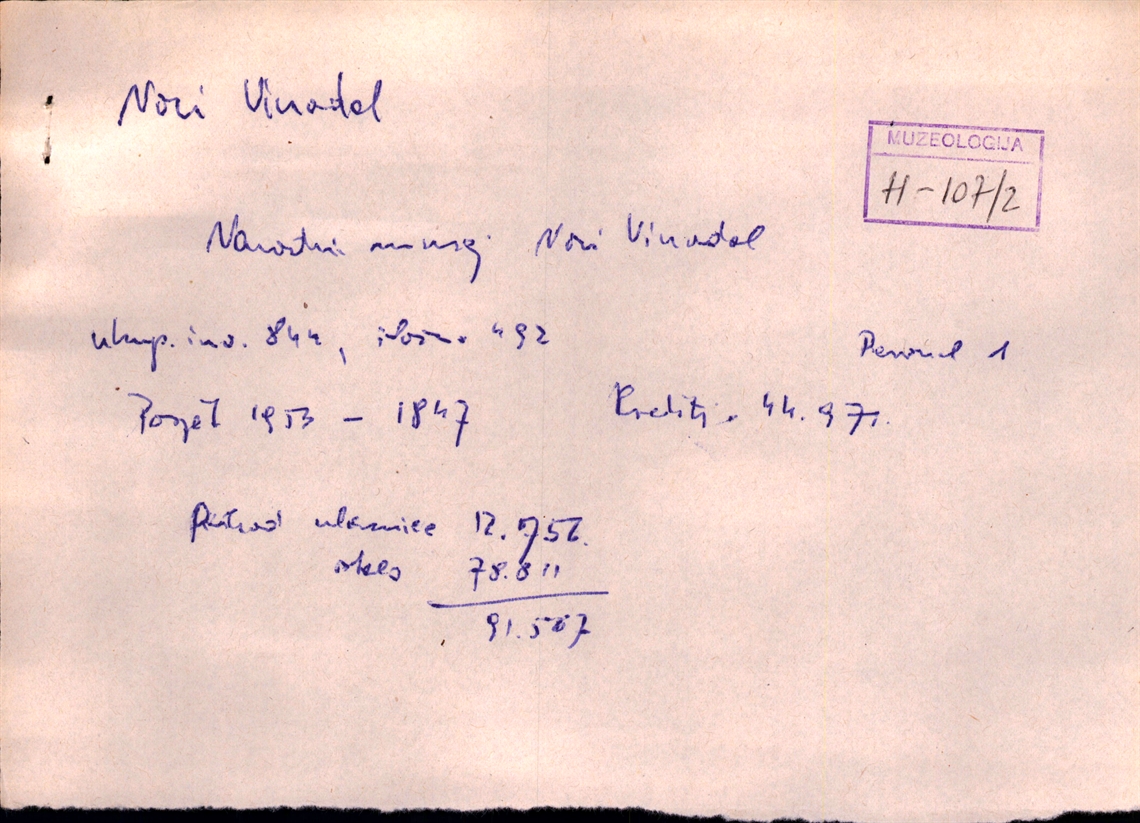 Novi Vinodol
MUZEOLOGIJA
H-107/2
Narodni muzej Novi Vinodol
ukup. inv. 844, izlož. 492
Personal 1
Posjet 1953 - 1847
Krediti. 44.971.
Prihod ulaznice 12.756.
78.811
91.567